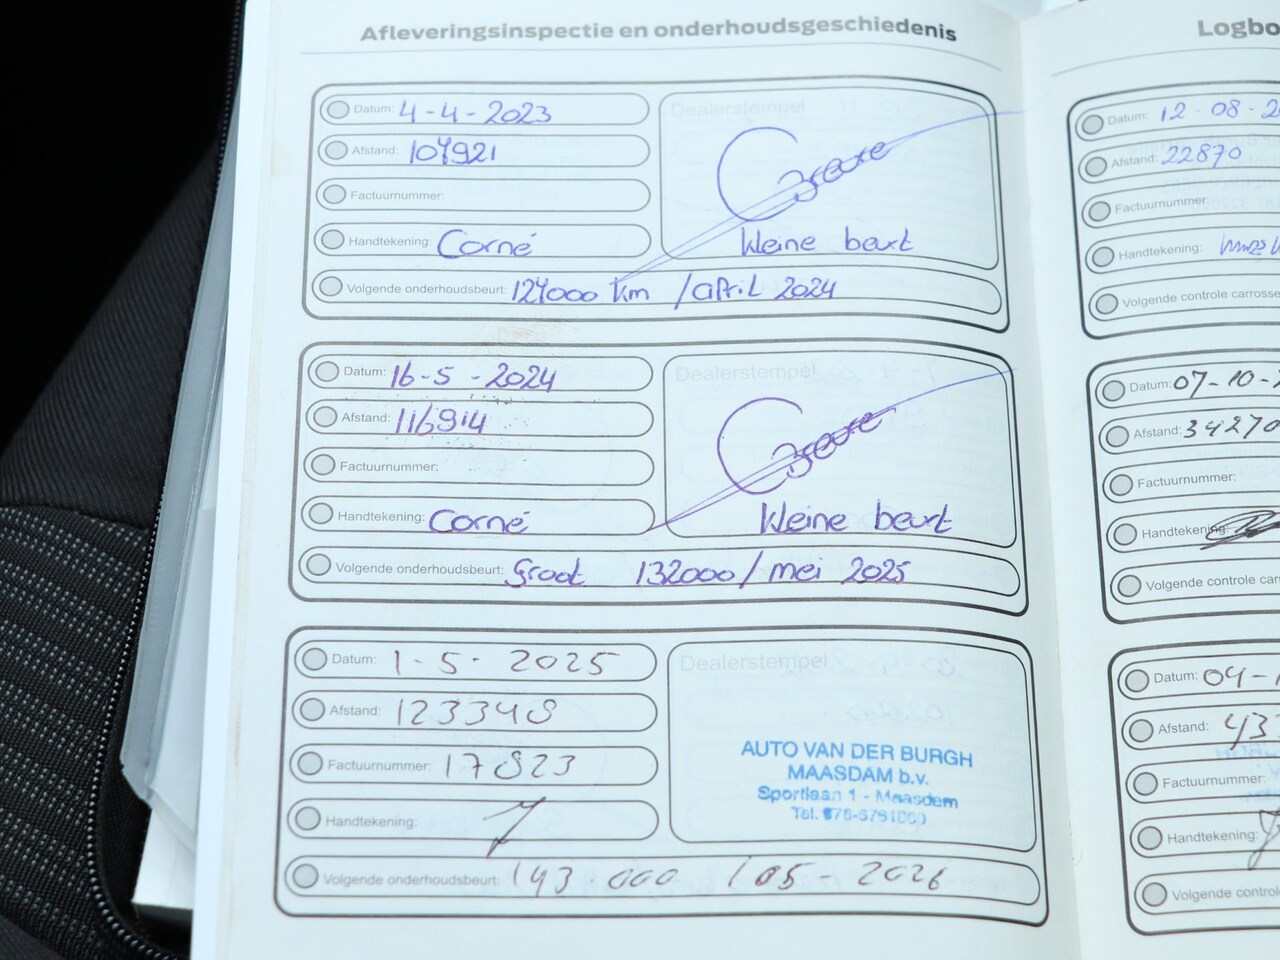 Afleveringsinspectie en onderhoudsgeschiedenis
Datum: 4-4-2023
Afstand: 107921
Factuurnummer:
Handtekening: Corné
Dealerstempel
Kleine beurt
Volgende onderhoudsbeurt: 127000 km / april 2024
Datum: 16-5-2024
Afstand: 116914
Factuurnummer:
Handtekening: Corné
Dealerstempel
Kleine beurt
Volgende onderhoudsbeurt: Groot 132000 / mei 2025
Datum: 1-5-2025
Afstand: 123348
Factuurnummer: 17823
Handtekening:
Dealerstempel
AUTO VAN DER BURGH
MAASDAM b.v.
Sportlaan 1 - Maasdam
Volgende onderhoudsbeurt: 143.000 / 05-2026
Logbo
Datum: 12-08-2
Afstand: 22870
Factuurnummer:
Handtekening:
Volgende controle carrosse
Datum: 07-10-
Afstand: 34270
Factuurnummer:
Handtekening:
Volgende controle car
Datum: 04-1
Afstand: 43
Factuurnummer:
Handtekening:
Volgende control